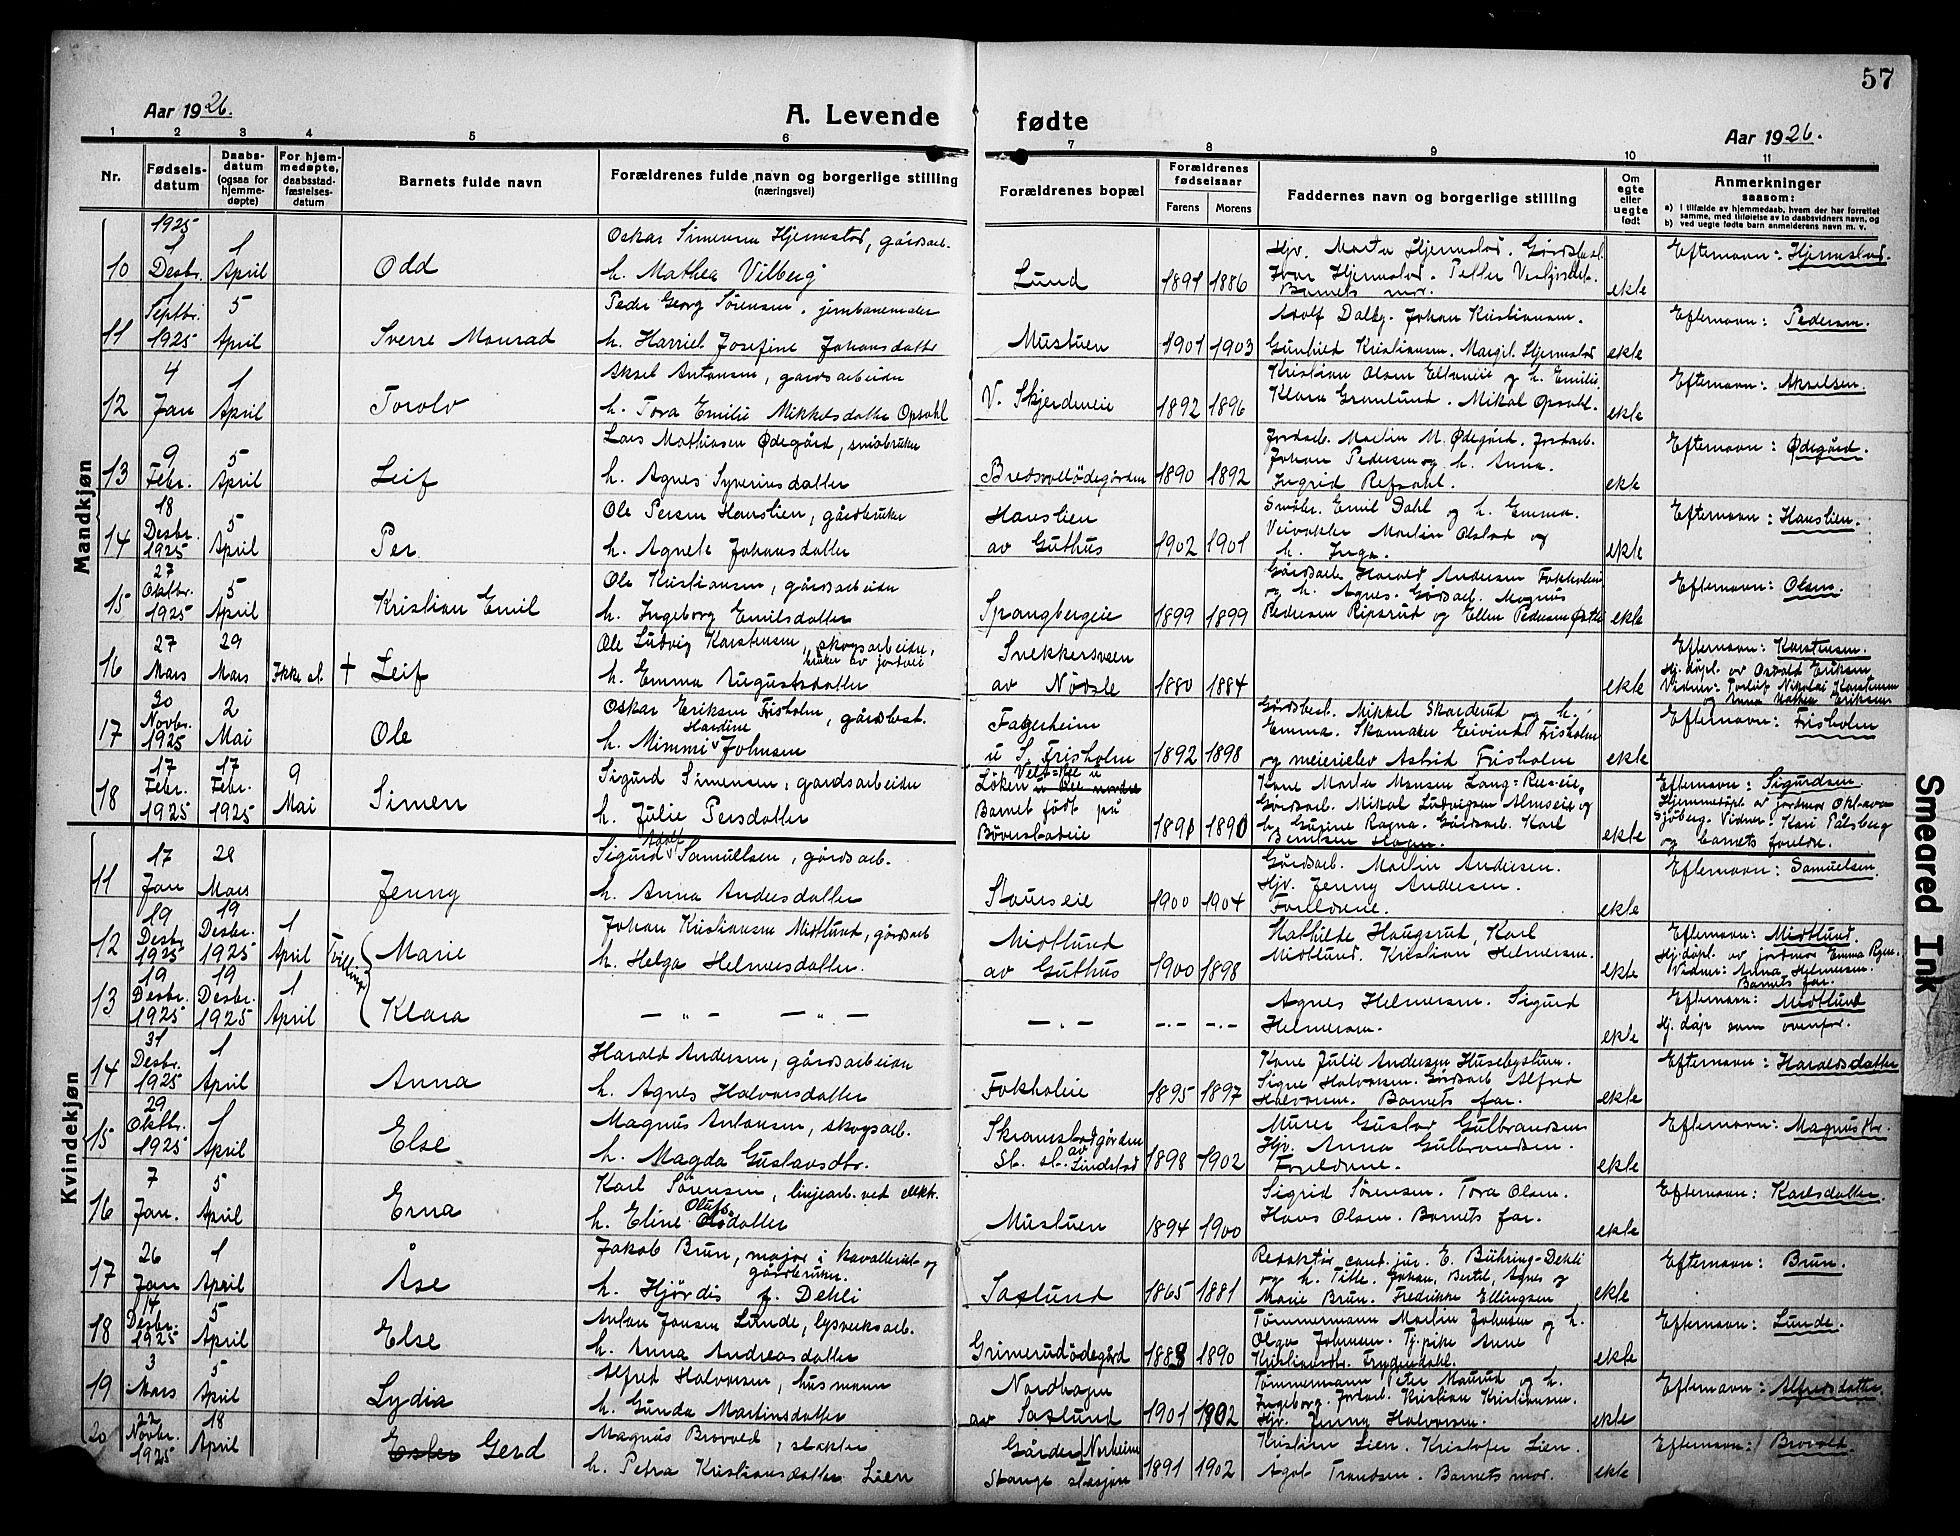 57
Aar 1926.
A. Levende fødte
Aar 1926.
1 2 3 4 5 6 7 8 9 10 11
Nr.
Fødselsdatum
Daabsdatum (ogsaa for hjemmedøpte)
For hjemmedøpte, daabsstadfæstelsesdatum
Barnets fulde navn
Forældrenes fulde navn og borgerlige stilling (næringsvei)
Forældrenes bopæl
Forældrenes fødselsaar
Farens Morens
Faddernes navn og borgerlige stilling
Om egte eller uegte født
Anmerkninger saasom:
a) i tilfælde av hjemmedaab, hvem der har forrettet samme, med tilføielse av to daabsvidners navn, og
b) ved uegte fødte barn anmelderens navn m. v.
Mandkjøn
10 1925 1 Desbr. 1 April Odd
Oskar Simensen Hjemstad, gårdsarb.
h. Mathea Vilberg
Lund 1891 1886
Hjv. Marta Hjemstad.
Ivar Hjemstad. Petter
Barnets mor.
ekte Efternavn: Hjemstad.
11 Septbr. 1925 5 April Sverre Monrad
Peder Georg Sørensen, jernbanemaler
h. Harriet Josefine Johansdatter
Mustuen 1901 1903
Adolf Dalby. Johan Kristiansen.
Gunhild Kristiansen. Margit Hjemstad
ekte Efternavn: Pedersen.
12 4 Jan 1 April Torolv
Aksel Antonsen, gardsarbeider
h. Tora Emilie Mikkelsdatter Opsahl
V. Skjerdeneie 1892 1896
Kristian Olsen og h. Emilie.
Klara Granlund. Mikal Opsahl.
ekte Efternavn: Akselsen.
13 9 Febr. 5 April Leif
Lars Mathiasen Ødegård, småbruker
h. Agnes Syverinsdatter
Bredsvollødegården 1890 1892
Jordarb. Martin M. Ødegård. Jordarb.
Johan Pedersen og h. Anna.
Ingrid Refsahl.
ekte Efternavn: Ødegård.
14 18 Desbr. 1925 5 April Per
Ole Persen Hanslien, gårdbruker
h. Agnete Johansdatter
Hanslien
av Guthus 1902 1901
Småbr. Emil Dahl og h. Emma.
Veivokter Martin Olstad og
h. Inga.
ekte Efternavn: Hanslien.
15 27 Oktbr. 1925 5 April Kristian Emil
Ole Kristiansen, gårdsarbeider
h. Ingeborg Emilsdatter
Spangbergeie 1899 1899
Gårdsarb. Harald Andersen Fokholeie
og h. Agnes. Gårdsarb. Magnus
Pedersen Ripsrud og Ellen Pedersen
ekte Efternavn: Olsen.
16 27 Mars 29 Mars Ikke st. † Leif
Ole Ludvig Karstensen, skogsarbeider,
bruker av jordveie
h. Emma Augustsdatter
Snekkersveen
av Nødsle 1880 1884
ekte Efternavn: Karstensen.
Hj.døpt av Osvald Eriksen
Vidner: Torleif Nikolai Karstensen
og Anna Eriksen
17 30 Novbr. 1925 2 Mai Ole
Oskar Eriksen Frisholm, gårdbest.
Hardine
h. Mimmi Johnsen
Fagerheim
u S. Frisholm 1892 1898
Gårdbest. Mikkel Skarderud og h.
Emma. Skomaker Eivind Frisholm
og meierielev Astrid Frisholm
ekte Efternavn: Frisholm
18 17 Febr. 1925 17 Febr. 1925 9 Mai Simen
Sigurd Simensen, gardsarbeider
h. Julie Persdatter
Løken
Barnet født på
Bøverstadeie 1891 1890
Kone Marta Monsen
Gårdsarb. Mikal Ludvigsen Almseie og
h. Gusine Ragna. Gårdsarb. Karl
Berntsen Hagen.
ekte Efternavn: Sigurdsen
Hjemmedøpt av jordmor Oktavia
Sjøberg. Vidner: Kari Pålsberg
og barnets foreldre.
Kvindekjøn
11 17 Jan 28 Mars Jenny
Adolf
Sigurd Samuelsen, gårdsarb.
h. Anna Andersdatter
Staurseie 1900 1904
Gårdsarb. Martin Andersen.
Hjv. Jenny Andersen.
Foreldrene.
ekte Efternavn: Samuelsen.
12 19 Desbr. 1925 19 Desbr. 1925 1 April Tvillinger Marie
Johan Kristiansen Midtlund, gårdsarb
h. Helga Helmersdatter.
Midtlund
av Guthus 1900 1898
Mathilde Haugsrud, Karl
Midtlund. Kristian Helmersen.
ekte Efternavn: Midtlund.
Hj.døpt av jordmor Emma
Vidner: Anna Helmersen.
Barnets far.
13 19 Desbr. 1925 19 Desbr. 1925 1 April Klara
— „ — — „ —
— „ — —„— —„—
Agnes Helmersen. Sigurd
Helmersen.
ekte Efternavn: Midtlund
Hj.døpt som ovenfor.
14 31 Desbr. 1925 1 April Anna
Harald Andersen, gårdsarbeider
h. Agnes Halvorsdatter
Fokholeie 1895 1897
Kone Julie Andersen Husebystuen.
Signe Halvorsen. Gårdsarb Alfred
Halvorsen. Barnets far.
ekte Efternavn: Haraldsdatter
15 29 Oktbr. 1925 1 April Else
Magnus Antonsen, skogsarb.
h. Magda Gustavsdtr.
Skramstadgården
av
St. st. Lindstad 1898 1902
Murer Gustav Gulbrandsen
Hjv. Anna Gulbrandsen.
Foreldrene.
ekte Efternavn: Magnusdtr.
16 7 Jan. 5 April Erna
Karl Sørensen, linjearb. ved elektr.
Olufs
h. Eline datter
Mustuen 1894 1900
Sigrid Sørensen. Tora Olsen.
Hans Olsen. Barnets far.
ekte Efternavn: Karlsdatter.
17 26 Jan 1 April Åse
Jakob Brun, major i kavalleriet og
gårdbruker.
h. Hjørdis f. Dehli
Saslund 1865 1881
Redaktør cand. jur. E. Bühring-Dehli
og h. Titte. Johan, Bertel, Agnes og
Marie Brun. Fredrikke Ellingsen
ekte Efternavn: Brun.
18 14 Desbr. 1925 5 April Else
Anton Jensen Lunde, lysverksarb.
h. Anna Andreasdatter
Grimerudødegård 1888 1890
Tømmermann Martin Johnsen og h.
Olga Johnsen. Tj.pike Anne
Kristiansdtr. Frydendahl.
ekte Efternavn: Lunde.
19 3 Mars 5 April Lydia
Alfred Halvorsen, husmann
h. Gunda Martinsdatter
Nordhagen
av Saslund 1901 1902
Tømmermann Peter Maurud og h.
Ingeborg. Jordarb. Kristian Kristiansen.
Hjv. Jenny Halvorsen.
ekte Efternavn: Alfredsdatter.
20 22 Novbr. 1925 18 April Ester Gerd
Magnus Brovold, slakter
h. Petra Kristiansdatter Lien
Gården Norheim
Stange stasjon 1891 1902
Kristian Lien. Kristofer Lien.
Ågot Trondsen. Barnets mor.
ekte Efternavn: Brovold.
Smeared Ink